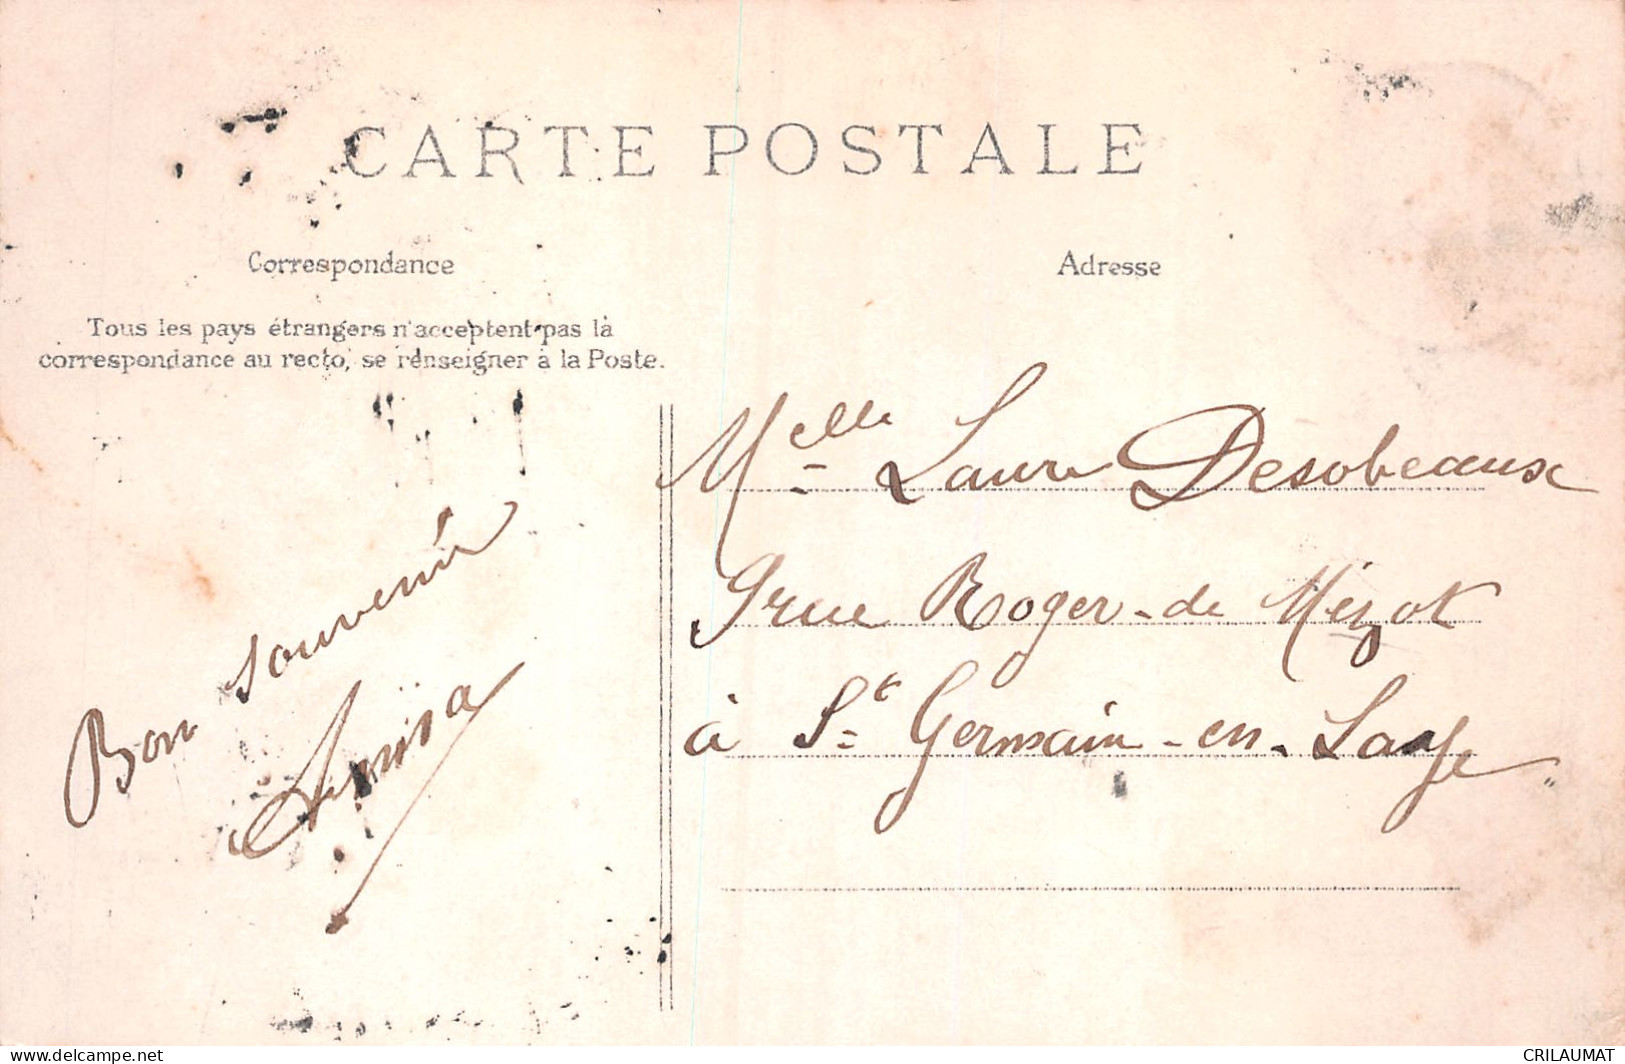 CARTE POSTALE
Correspondance
Adresse
Tous les pays étrangers n'acceptent pas la
correspondance au recto, se renseigner à la Poste.
Bon souvenir
Melle Laure Desobeaux
9 rue Roger-de Mézot
à St Germain-en-Laye
www.delcampe.net
CRILAUMAT